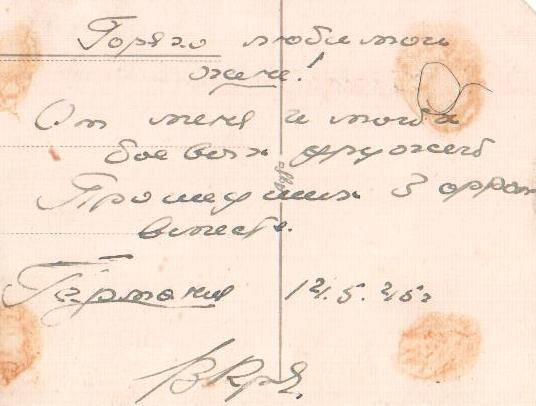 Горячо любимой
жене!
От меня и моих
боевых друзей
Прошедших 3 фрон
вместе.
Германия 12.5.45г